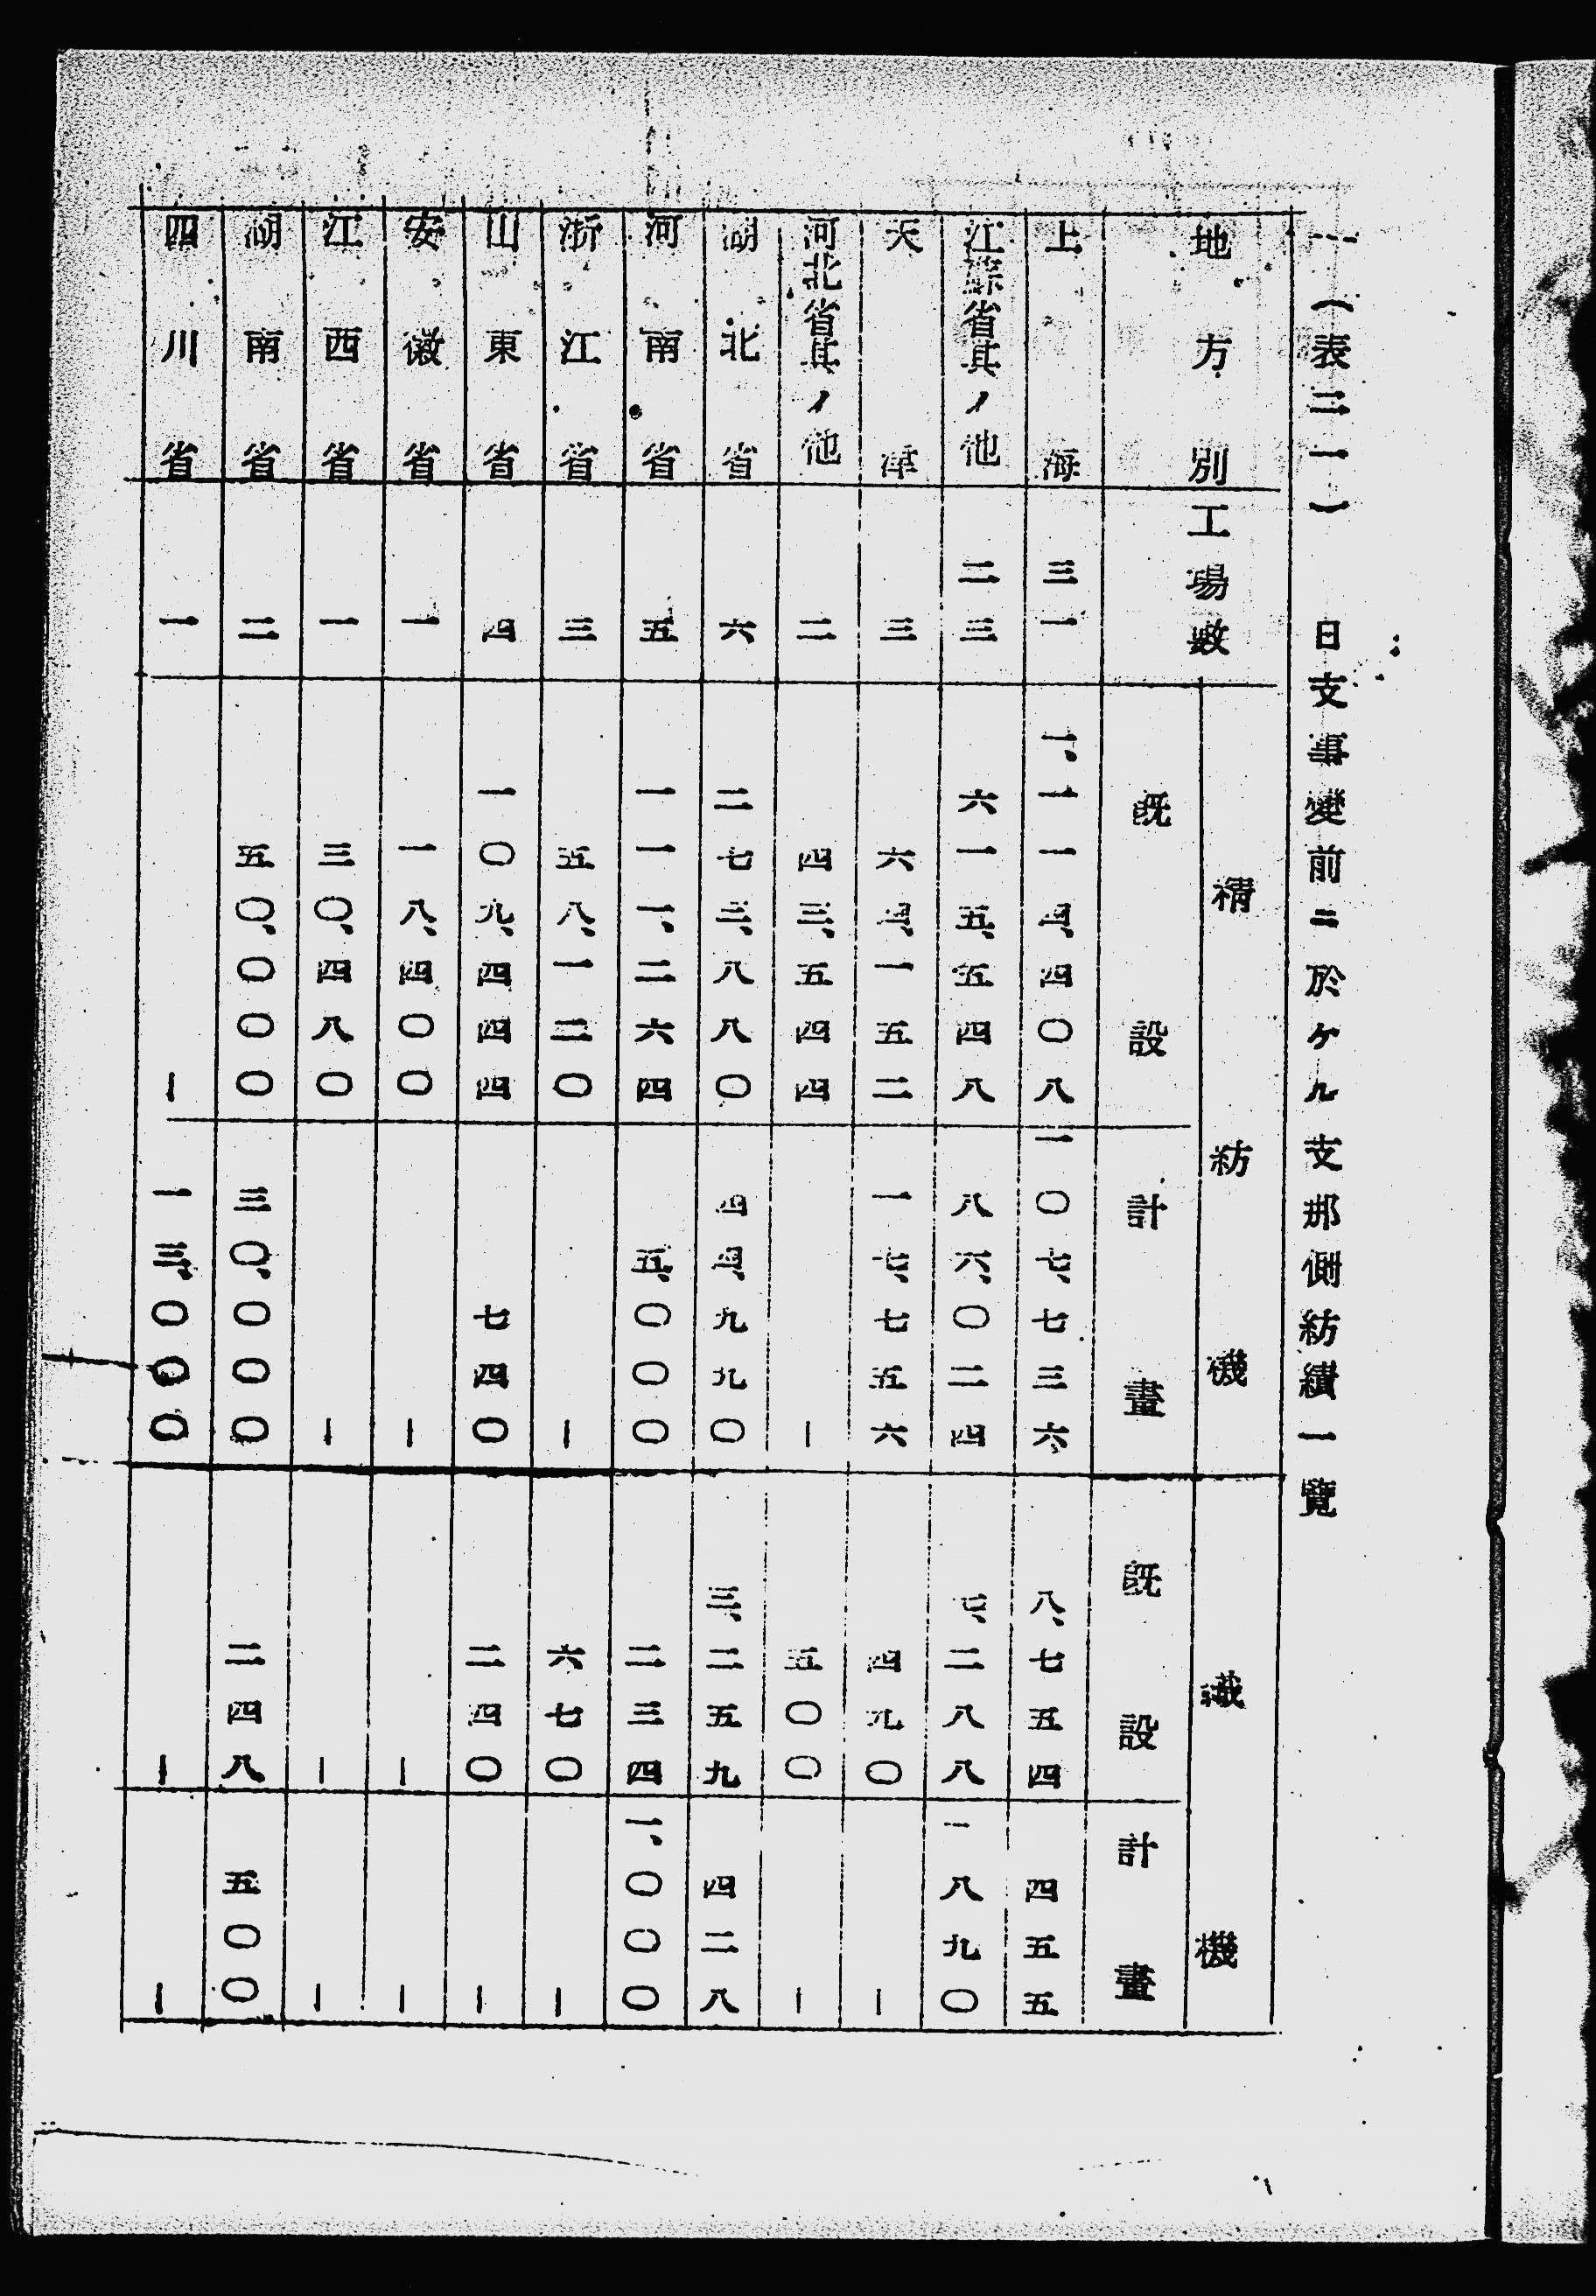 一（表三一）　日支事變前ニ於ケル支那側紡績一覽
地方別　工場數　精紡機　織機
既設　計畫　既設　計畫
上海　三一　一、一一四、四〇八　一〇七、七三六　八、七五四　四五五
江蘇省其ノ他　二三　六一五、五四八　八六、〇二四　七、二八八　一八九〇
天津　三　六四、一五二　一七、七五六　四九〇　－
河北省其ノ他　二　四三、五四四　－　五〇〇　－
湖北省　六　二七三、八八〇　四四、九九〇　三、二五九　四二八
河南省　五　一一一、二六四　五、〇〇〇　二三四　一、〇〇〇
浙江省　三　五八、一二〇　－　六七〇　－
山東省　四　一〇九、四四四　七四〇　二四〇　－
安徽省　一　一八、四〇〇　－　－　－
江西省　一　三〇、四八〇　－　－　－
湖南省　二　五〇、〇〇〇　三〇、〇〇〇　二四八　五〇〇
四川省　一　－　一三、〇〇〇　－　－